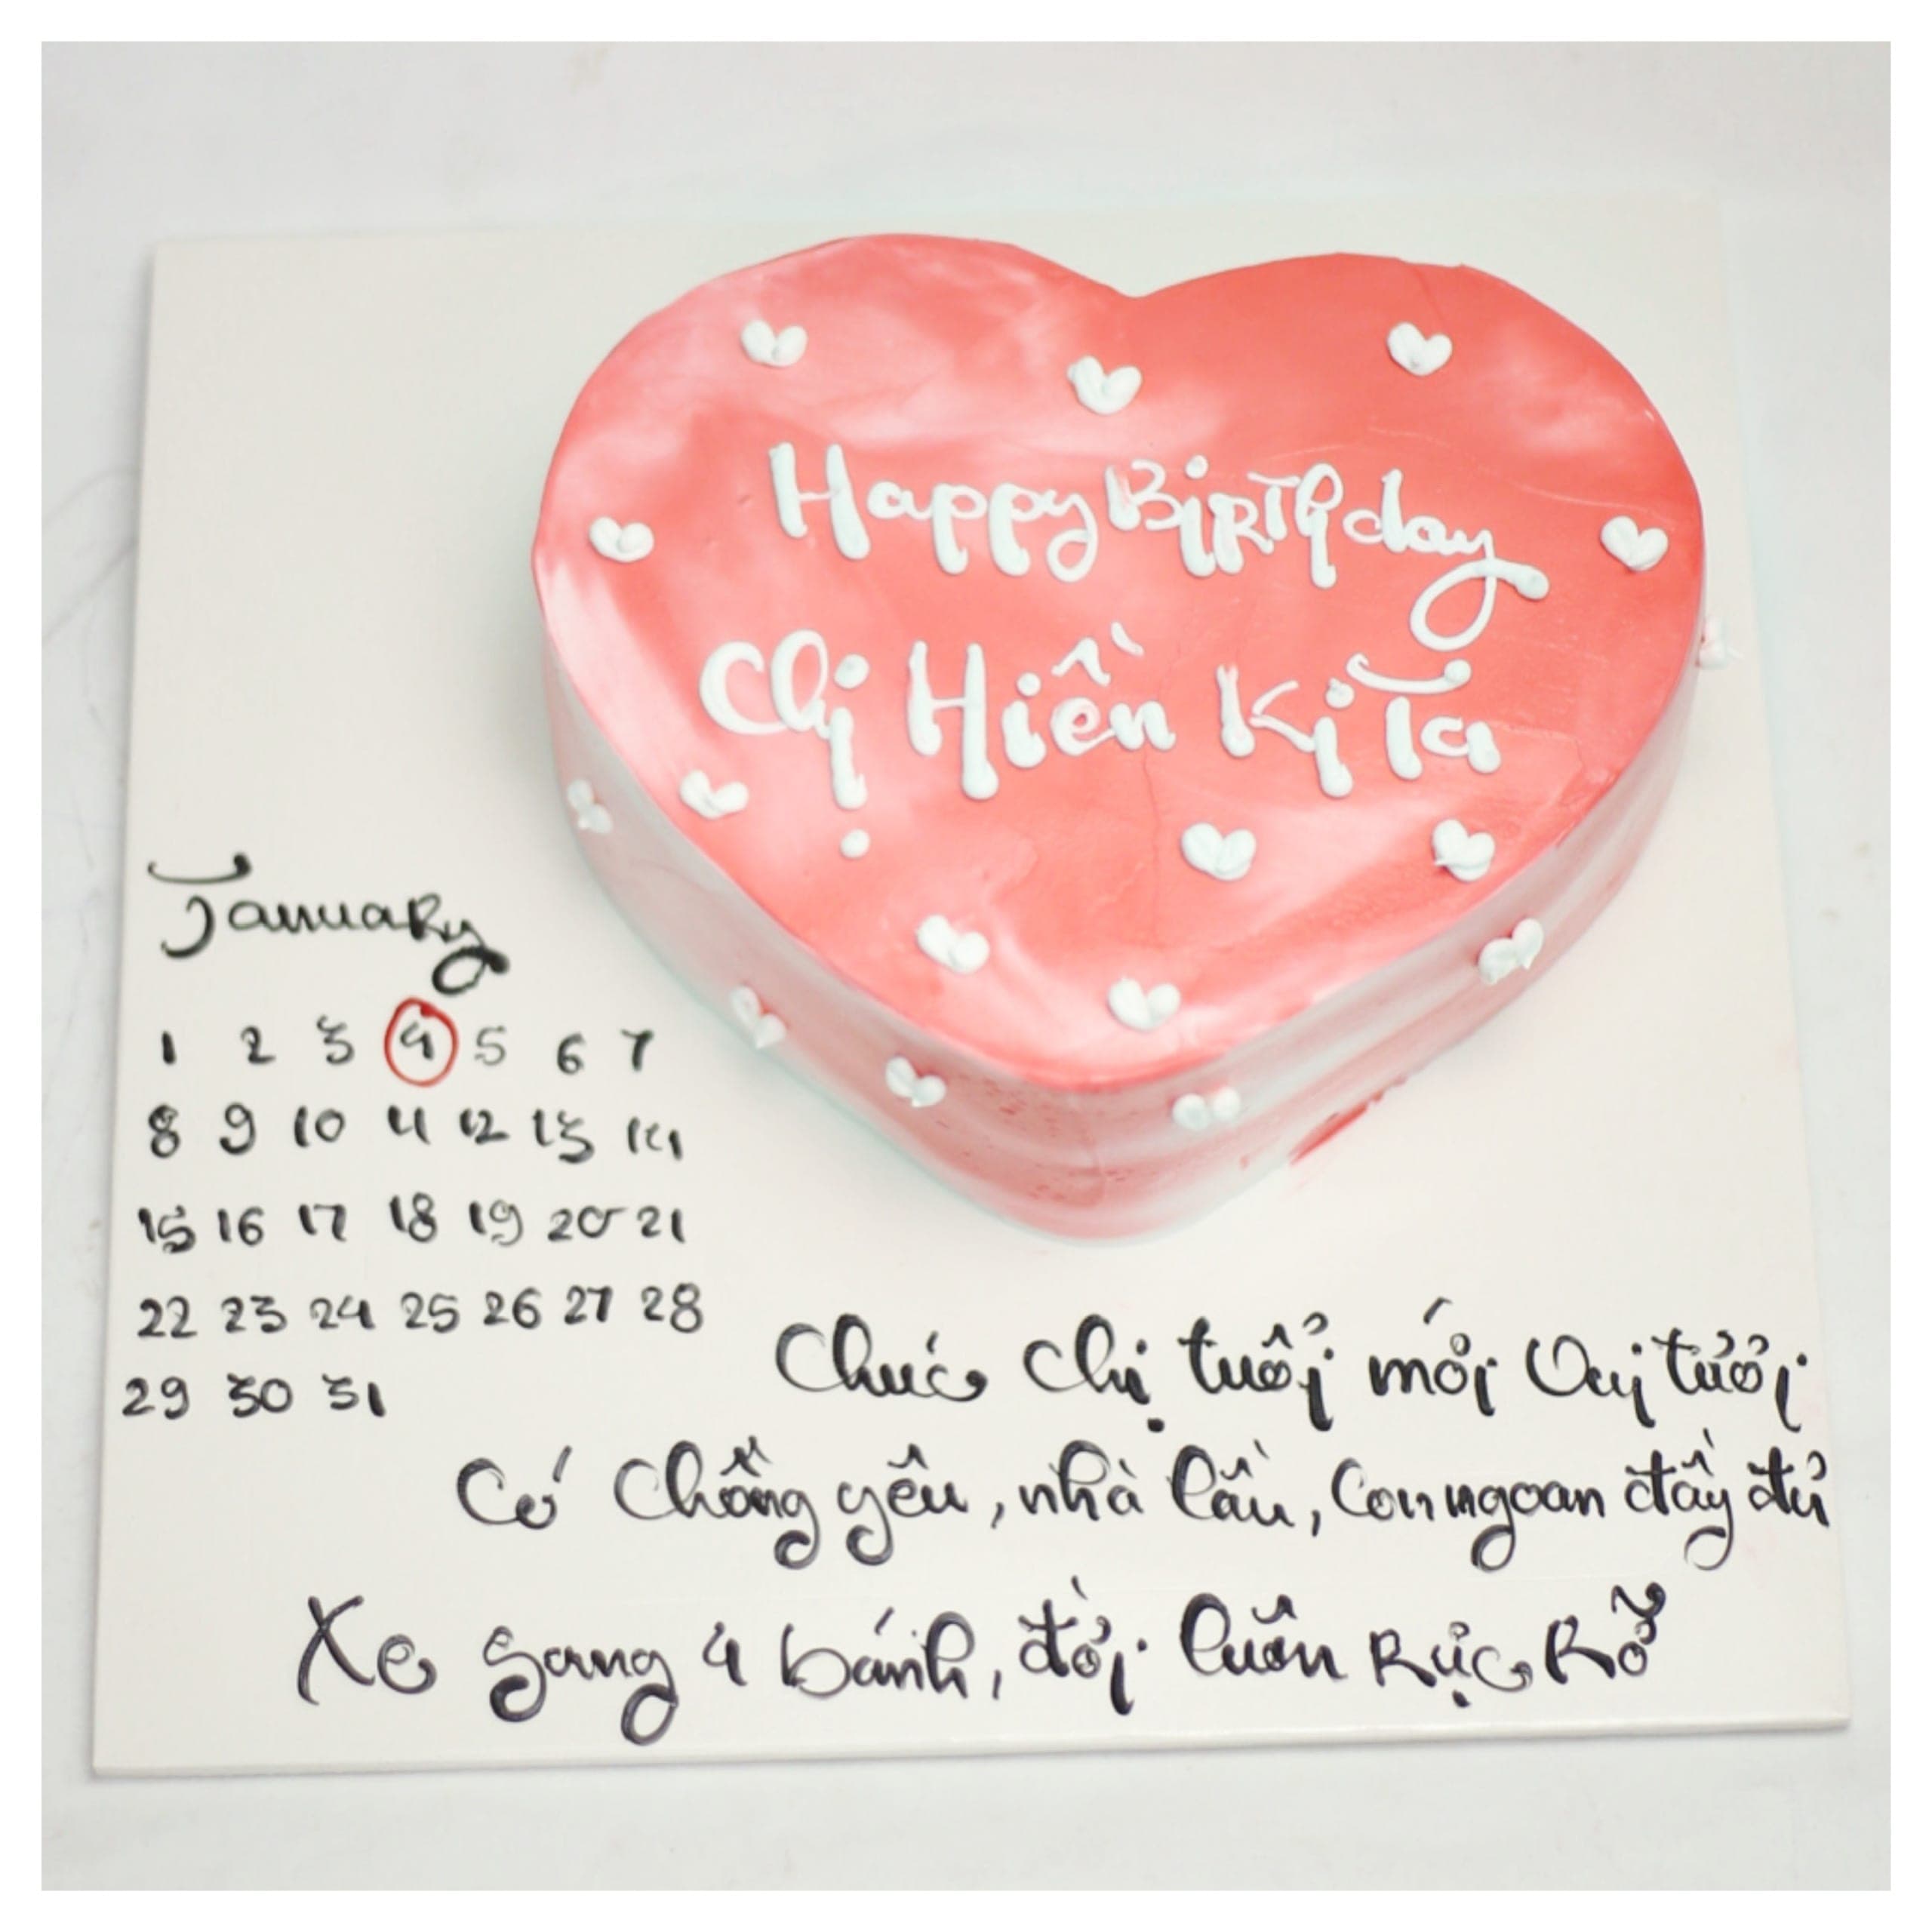 Happy Birthday
Chị Hiền Ki Ta
January
1 2 3 4 5 6 7
8 9 10 11 12 13 14
15 16 17 18 19 20 21
22 23 24 25 26 27 28
29 30 31
Chúc chị tuổi mới vui tươi
Có chồng yêu, nhà lầu, con ngoan đầy đủ
Xe sang 4 bánh, đời luôn rực rỡ